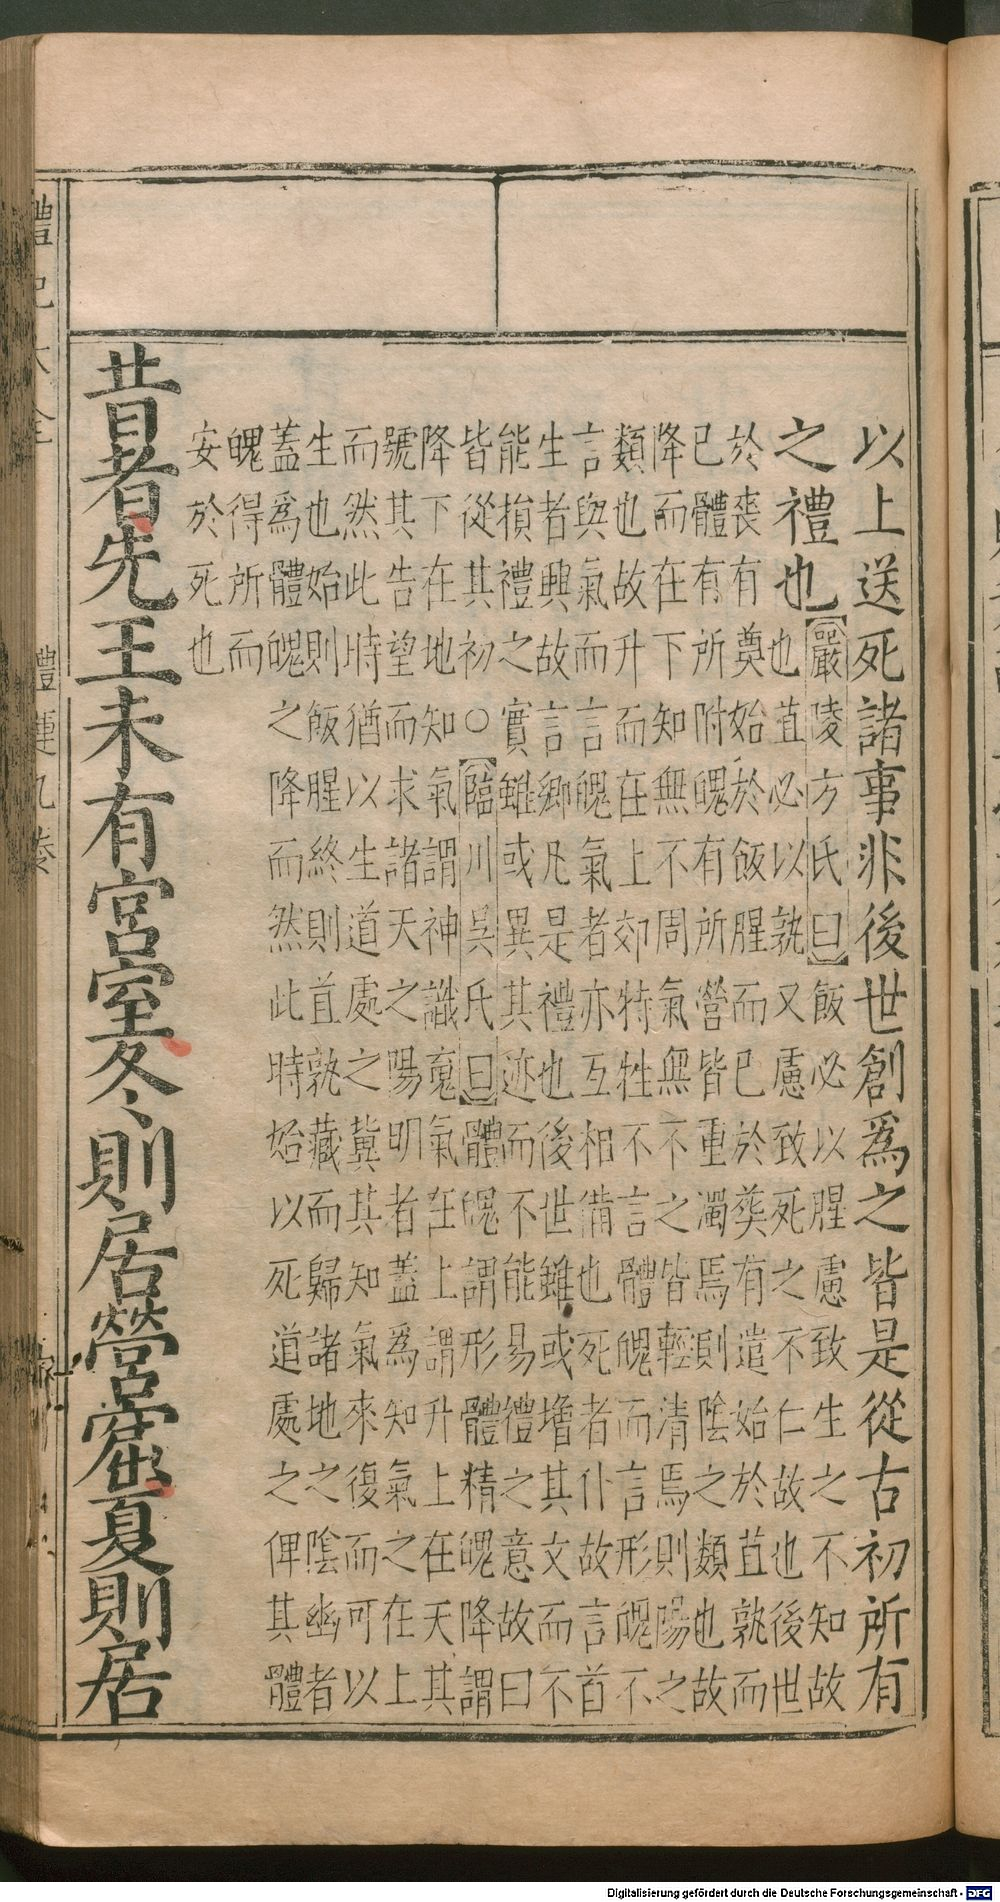 以上送死諸事非後世創爲之皆是從古初所有
之禮也
嚴陵方氏曰飯必以腥慮致生之不知故
也苴必以孰又慮致死之不仁故也後世
於喪有奠始於飯腥而已於葬有遣始於苴孰而
已體有所附魄有所營皆重濁焉則陰之類也故
降而在下知無不周氣無不之皆輕清焉則陽之
類也故升而在上郊特牲不言體魄而言形魄不
言與氣而言魄氣者亦互相備也死者仆故言首
生者興故言鄉凡是禮也後世雖或增其文而不
能損禮之實雖或異其迹而不能易禮之意故曰
皆從其初○臨川吳氏曰體魄謂形體精魄降謂
降下在地知氣謂神識䰟氣在上謂升上在天其
號其告望而求諸天之陽明者蓋爲知氣之在上
而然此時猶以生道處之冀其知氣來復而可以
生也始則飯腥終則苴孰藏而歸諸地之陰幽者
蓋爲體魄之降而然此時始以死道處之俾其體
魄得所而
安於死也
昔者先王未有宮室冬則居營窟夏則居
禮記大全 禮運九卷
Digitalisierung gefördert durch die Deutsche Forschungsgemeinschaft - DFG